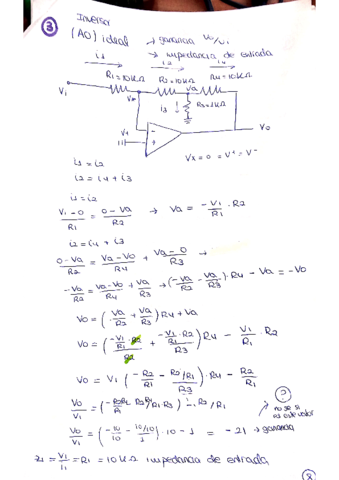 Inversor
③ (AO) ideal → ganancia Vo/V1
→ impedancia de entrada
i1 i2 i4
R1=10kΩ R2=10kΩ Va R4=10kΩ
V1
i3 R3=1kΩ
Vo
Vx = 0 = V+ = V-
i1 = i2
i2 = i4 + i3
i1 = i2
V1-0/R1 = 0-Va/R2 → Va = -V1/R1 · R2
i2 = i4 + i3
0-Va/R2 = Va-Vo/R4 + Va-0/R3 →
-Va/R2 = Va-Vo/R4 + Va/R3 → (-Va/R2 - Va/R3) · R4 - Va = -Vo
Vo = (Va/R2 + Va/R3) R4 + Va
Vo = (-V1/R1 · R2/R2 + -V1/R1 · R2/R3) R4 - V1/R1 · R2
Vo = V1 (-R2/R1 - R2/R1/R3) · R4 - R2/R1
?
no se si
Vo/V1 = (-10/10 - 10/10/1) · 10 - 1 = -21 → ganancia
Zi = V1/i1 = R1 = 10kΩ impedancia de entrada